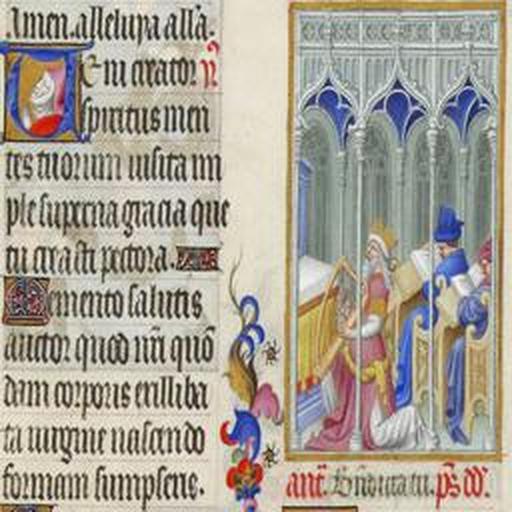 Amen. alleluya all'a.
Veni creator
spiritus men
tes tuorum visita im
ple superna gracia que
tu creasti pectora.
Memento salutis
auctor quod nr̄i quō
dam corporis ex illiba
ta virgine nascendo
formam sumpseris.
ant. Bn̄dicta tu. ps. dd.